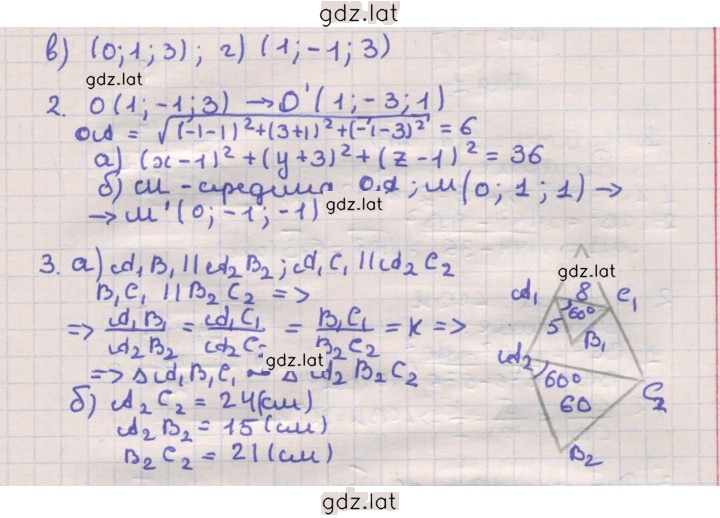 gdz.lat
в) (0;1;3); г) (1;-1;3)
gdz.lat
2. O(1;-1;3) → O'(1;-3;1)
OA = √((-1-1)²+(3+1)²+(-1-3)²) = 6
а) (x-1)²+(y+3)²+(z-1)² = 36
б) M - середина OA; M(0; 1; 1) →
→ M'(0;-1;-1)
gdz.lat
3. а) A₁B₁ || A₂B₂; A₁C₁ || A₂C₂
B₁C₁ || B₂C₂ =>
=> A₁B₁/A₂B₂ = A₁C₁/A₂C₂ = B₁C₁/B₂C₂ = K =>
gdz.lat
=> Δ A₁B₁C₁ ~ Δ A₂B₂C₂
б) A₂C₂ = 24(см)
A₂B₂ = 15(см)
B₂C₂ = 21(см)
gdz.lat
A₁ 8 C₁
60°
5
B₁
A₂
60°
60
C₂
B₂
gdz.lat